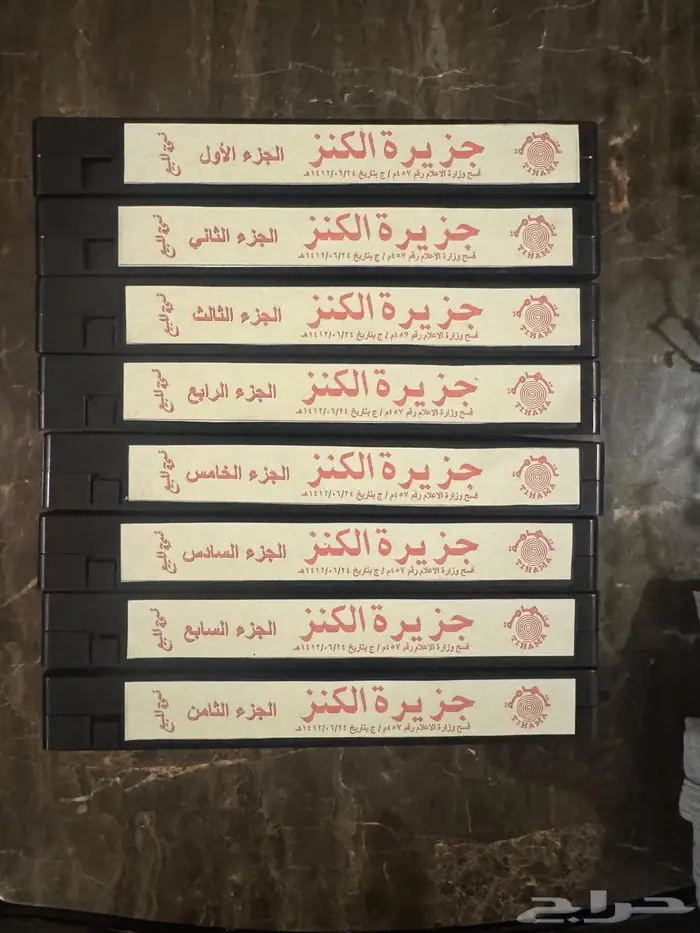 تهامة
TIHAMA
جزيرة الكنز الجزء الأول نسخة للبيع
فسح وزارة الاعلام رقم ٤٥٧م / ج بتاريخ ١٤١٢/٠٦/٢٤هـ
تهامة
TIHAMA
جزيرة الكنز الجزء الثاني نسخة للبيع
فسح وزارة الاعلام رقم ٤٥٧م / ج بتاريخ ١٤١٢/٠٦/٢٤هـ
تهامة
TIHAMA
جزيرة الكنز الجزء الثالث نسخة للبيع
فسح وزارة الاعلام رقم ٤٥٧م / ج بتاريخ ١٤١٢/٠٦/٢٤هـ
تهامة
TIHAMA
جزيرة الكنز الجزء الرابع نسخة للبيع
فسح وزارة الاعلام رقم ٤٥٧م / ج بتاريخ ١٤١٢/٠٦/٢٤هـ
تهامة
TIHAMA
جزيرة الكنز الجزء الخامس نسخة للبيع
فسح وزارة الاعلام رقم ٤٥٧م / ج بتاريخ ١٤١٢/٠٦/٢٤هـ
تهامة
TIHAMA
جزيرة الكنز الجزء السادس نسخة للبيع
فسح وزارة الاعلام رقم ٤٥٧م / ج بتاريخ ١٤١٢/٠٦/٢٤هـ
تهامة
TIHAMA
جزيرة الكنز الجزء السابع نسخة للبيع
فسح وزارة الاعلام رقم ٤٥٧م / ج بتاريخ ١٤١٢/٠٦/٢٤هـ
تهامة
TIHAMA
جزيرة الكنز الجزء الثامن نسخة للبيع
فسح وزارة الاعلام رقم ٤٥٧م / ج بتاريخ ١٤١٢/٠٦/٢٤هـ
حراج